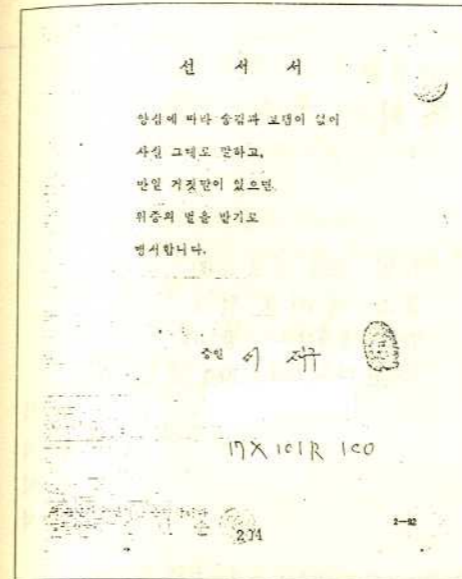 선 서 서
양심에 따라 숨김과 보탬이 없이
사실 그대로 말하고,
만일 거짓말이 있으면
위증의 벌을 받기로
맹서합니다.
증인 이
17X101R 100
204
2-92